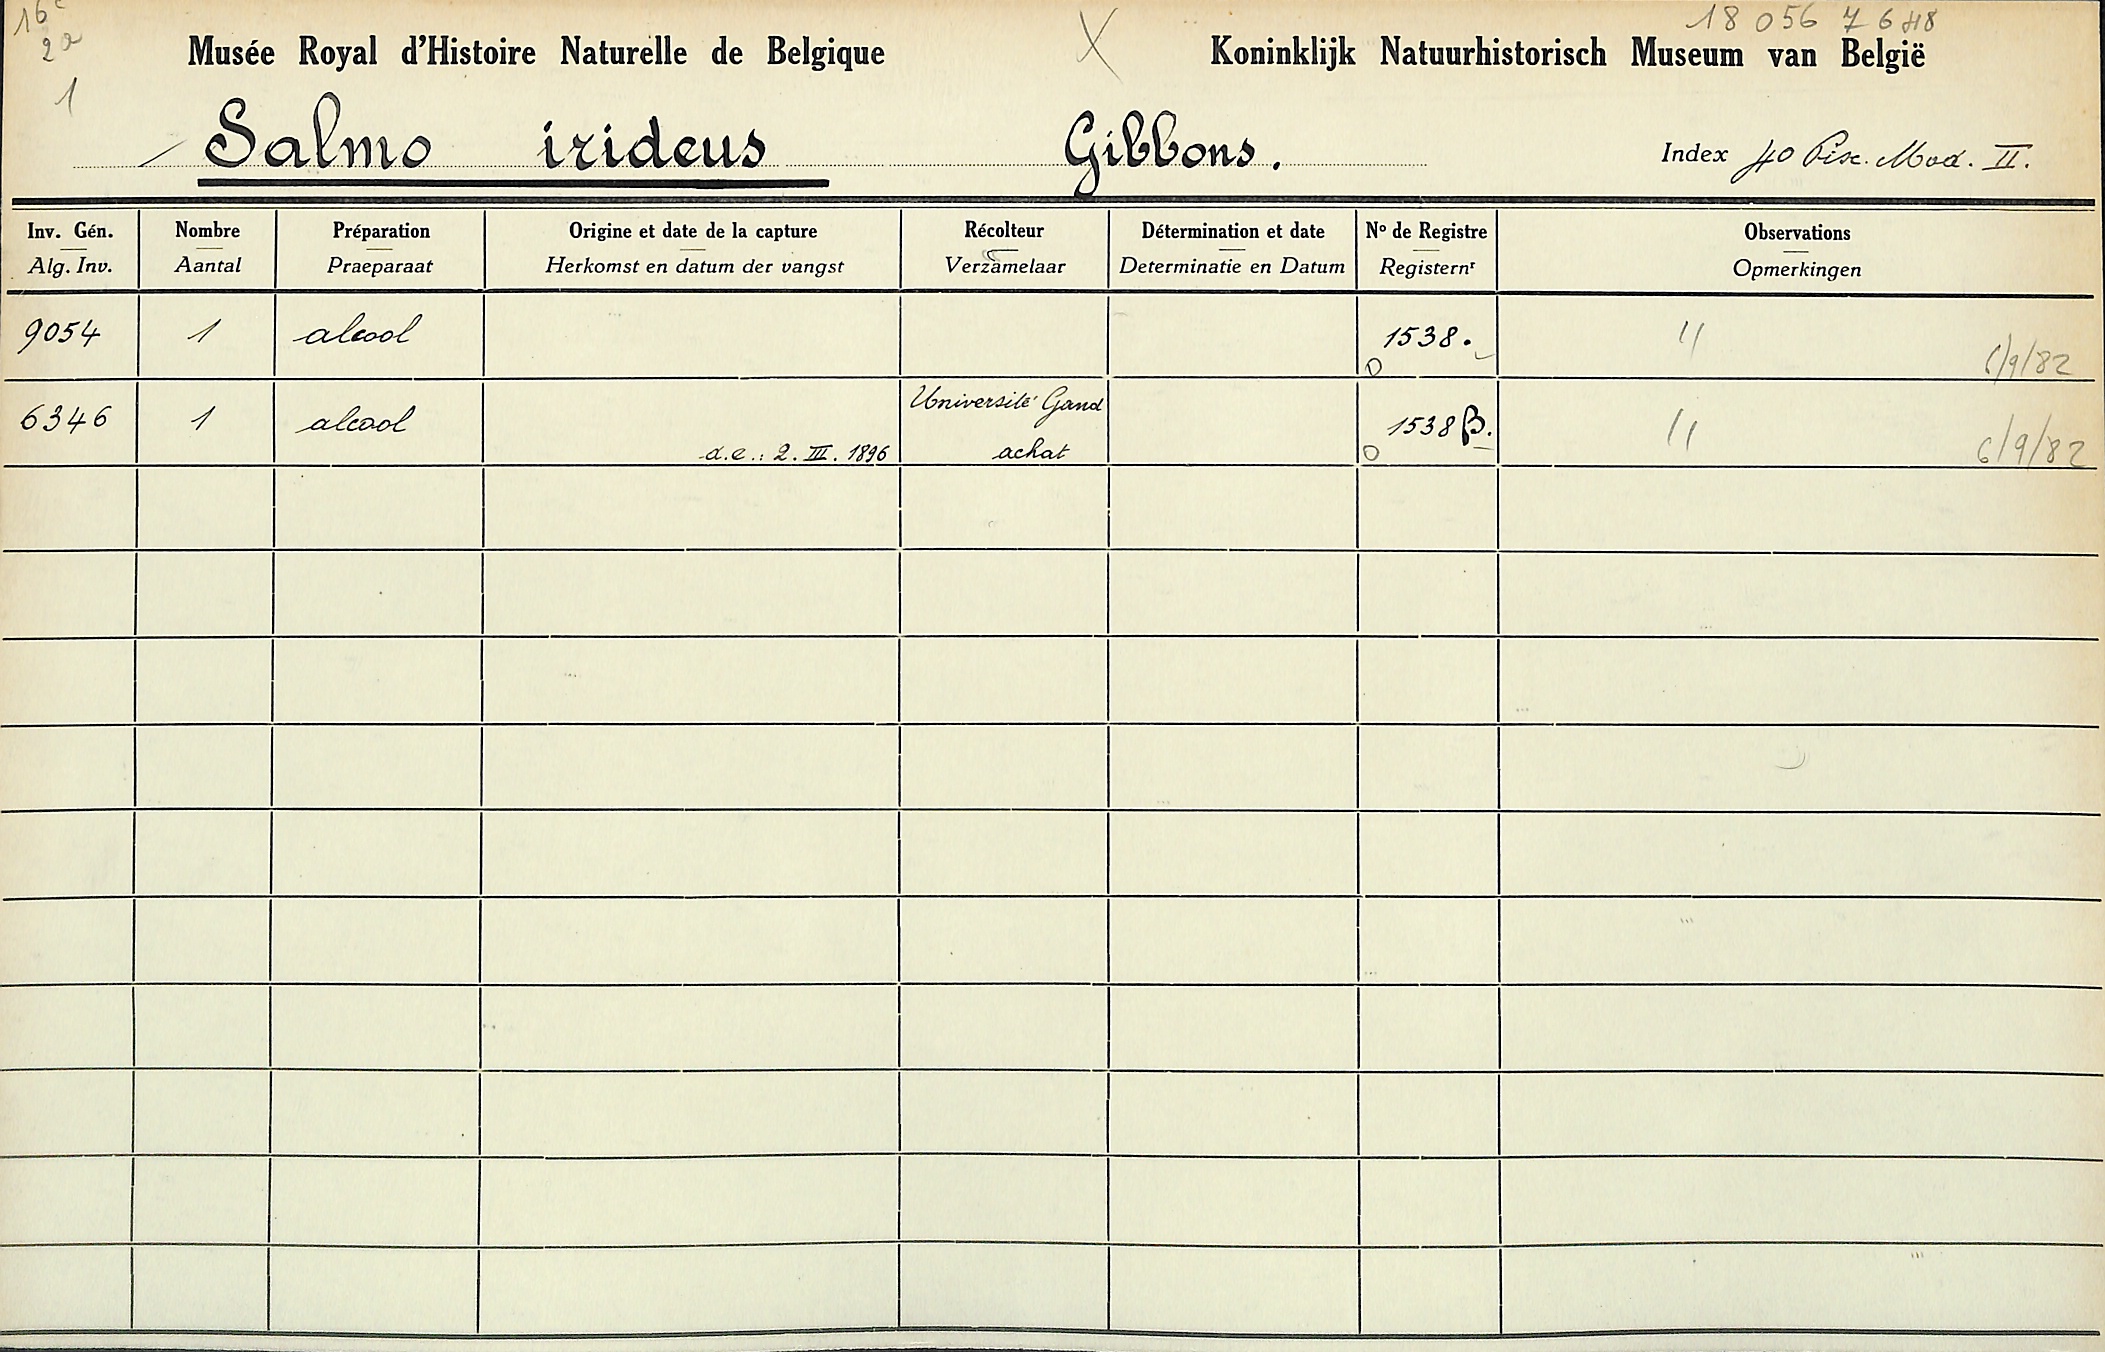 16c
2a
18 056 7 648
Musée Royal d'Histoire Naturelle de Belgique
X
Koninklijk Natuurhistorisch Museum van België
1
Salmo irideus Gibbons.
Index 40 Pisc. Mod. II.
Inv. Gén. Nombre Préparation Origine et date de la capture Récolteur Détermination et date No de Registre Observations
Alg. Inv. Aantal Praeparaat Herkomst en datum der vangst Verzamelaar Determinatie en Datum Registernr Opmerkingen
9054 1 alcool 1538. 6/9/82
Université Gand
6346 1 alcool 1538 β.
d.e.: 2. III. 1896 achat 6/9/82